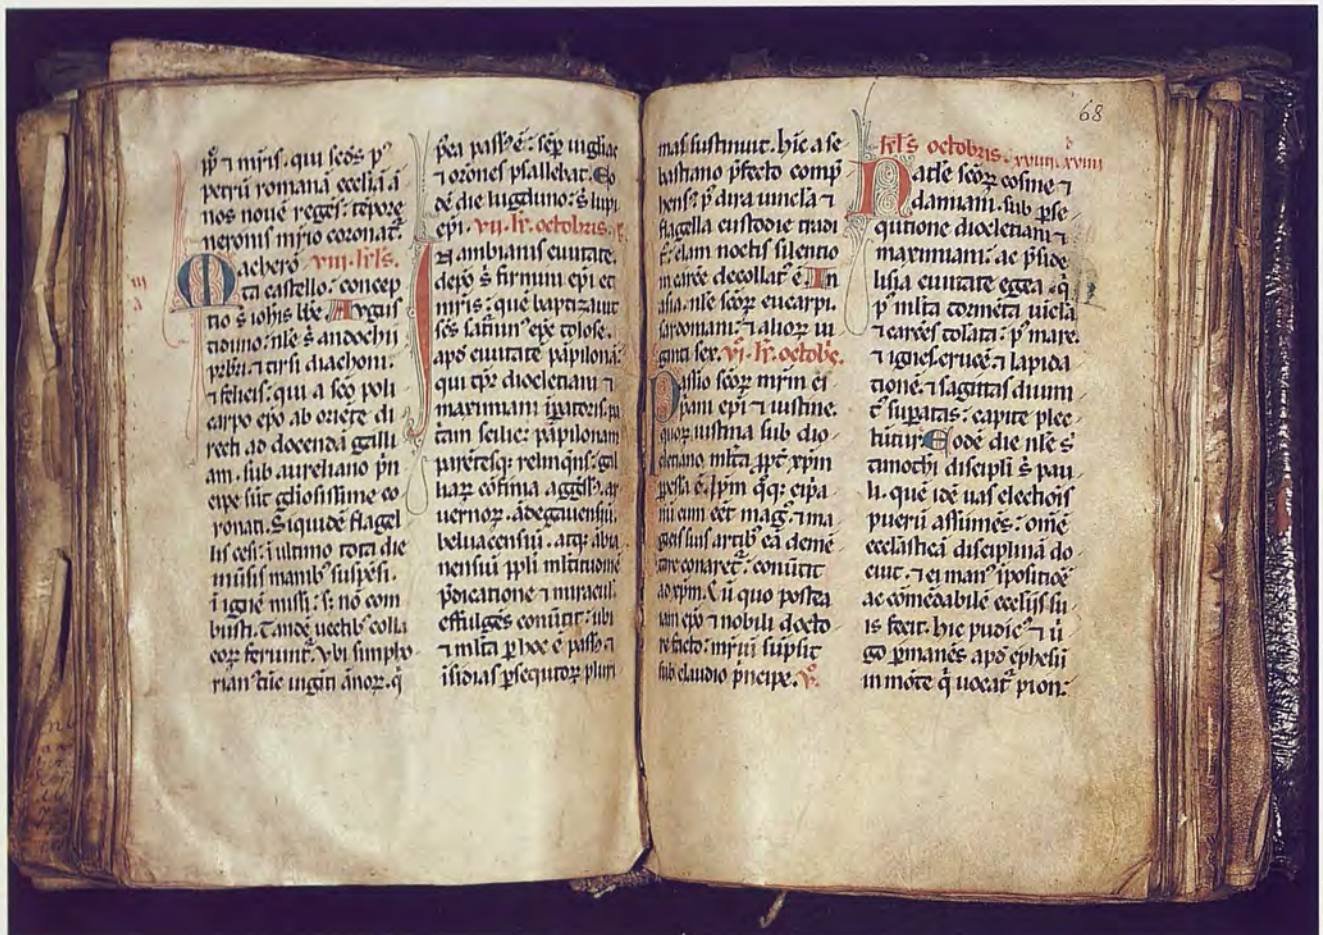 pp̄ ⁊ mr̄is. qui sc̄os pꝰ
petrū romanā eccl̄iā ā
nos nouē regēs: tēpore
neronis mr̄io coronat̄.
acherō viii. kl̄s.
M ta castello: concep
tio s̄ ioh̄is bb̄e. Augus
tiduno: nl̄e s̄ andochii
pr̄bri: ⁊ tirsi diachoni.
⁊ felicis: qui a sc̄o poli
carpo ep̄o ab oriēte di
recti ad docendā galli
am. sub aureliano p̄n
cipe sūt gl̄iosissime co
ronati. Siquidē flagel
lis cesi: ī ultimo tota die
īuersis manibꝰ suspēsi.
ī ignē missi: s; nō com
busti. Tandē uectibꝰ colla
eoꝝ feriunt̄. Vbi simpho
rianꝰ tūc uiginti ānoꝝ. q̄
p̄ea passꝰ ē: sēp uigilias
⁊ or̄ones psallebat. Eo
dē die lugduno: s̄ lupi
ep̄i. vii. kl̄. octobris.
In ambianis ciuitate.
depō s̄ firmini ep̄i et
mr̄is: quē baptizauit
sc̄s sat̄ninꝰ ep̄c tolose.
apd̄ ciuitatē pāpilonā:
qui tp̄r diocletiani ⁊
maximiani īp̄atoris. pa
t̄am scilic; pāpilonam
parētesq; relinq̄ns: gal
liaꝝ cōfinia aggessꝰ. ar
uernoꝝ. ādegauensiū.
beluacensiū. atq; abia
nensiū ppl̄i ml̄titudinē
p̄dicatione ⁊ miraculis
effulgēs conūtit: ubi
⁊ ml̄ta p̄ hoc ē passꝰ. ⁊
īsidias p̄sequtoꝝ pluri
mas sustinuit. hic a se
bastiano p̄fecto comp̄
hensꝰ. p̄ dira uincla ⁊
flagella custodie tradi
t̄: clam noctis silentio
in carcē decollatꝰ ē. In
asia. nl̄e sc̄oꝝ eucarpi.
bardomani. ⁊ alioꝝ ui
ginti sex. vi. kl̄. octobr̄.
Passio sc̄oꝝ mr̄m ci
p̄ani ep̄i ⁊ iustine.
quoꝝ iustina sub dio
cletiano. ml̄ta ꝓpt̄ xp̄m
p̄pessa ē. Ip̄m q̄q; cip̄a
nū cum eēt magꝰ. ⁊ ma
gicis suis artibꝰ eā demē
tare conaret̄: conūtit
ad xp̄m. Cū quo postea
iam ep̄o ⁊ nobili docto
re facto: mr̄iū sūpsit
sub claudio p̄ncipe. v.
68
kl̄s octobris. xxviii. xxviiii
Natale sc̄oꝝ cosme ⁊
damiani. sub p̄se
qutione diocletiani ⁊
maximiani: ac p̄side
lisia ciuitate egea. q̄
p̄ ml̄ta tormēta uīcla
⁊ carcēs tolata: p̄ mare
⁊ ignes. crucē. ⁊ lapida
tionē. ⁊ sagittas diuini
tꝰ sup̄atas: capite plec
tūtur. Eodē die nl̄e s̄
timothi discipl̄i s̄ pau
li. quē idē uas electiōis
puerū assumēs: om̄ē
eccl̄asticā disciplinā do
cuit. ⁊ ei manꝰ īpositiōē
ac cōmēdabilē eccl̄iis su
is fecit. hic pudicꝰ ⁊ ū
go p̄manēs apd̄ ephesū
in mōte q̄ uocat̄ pion: